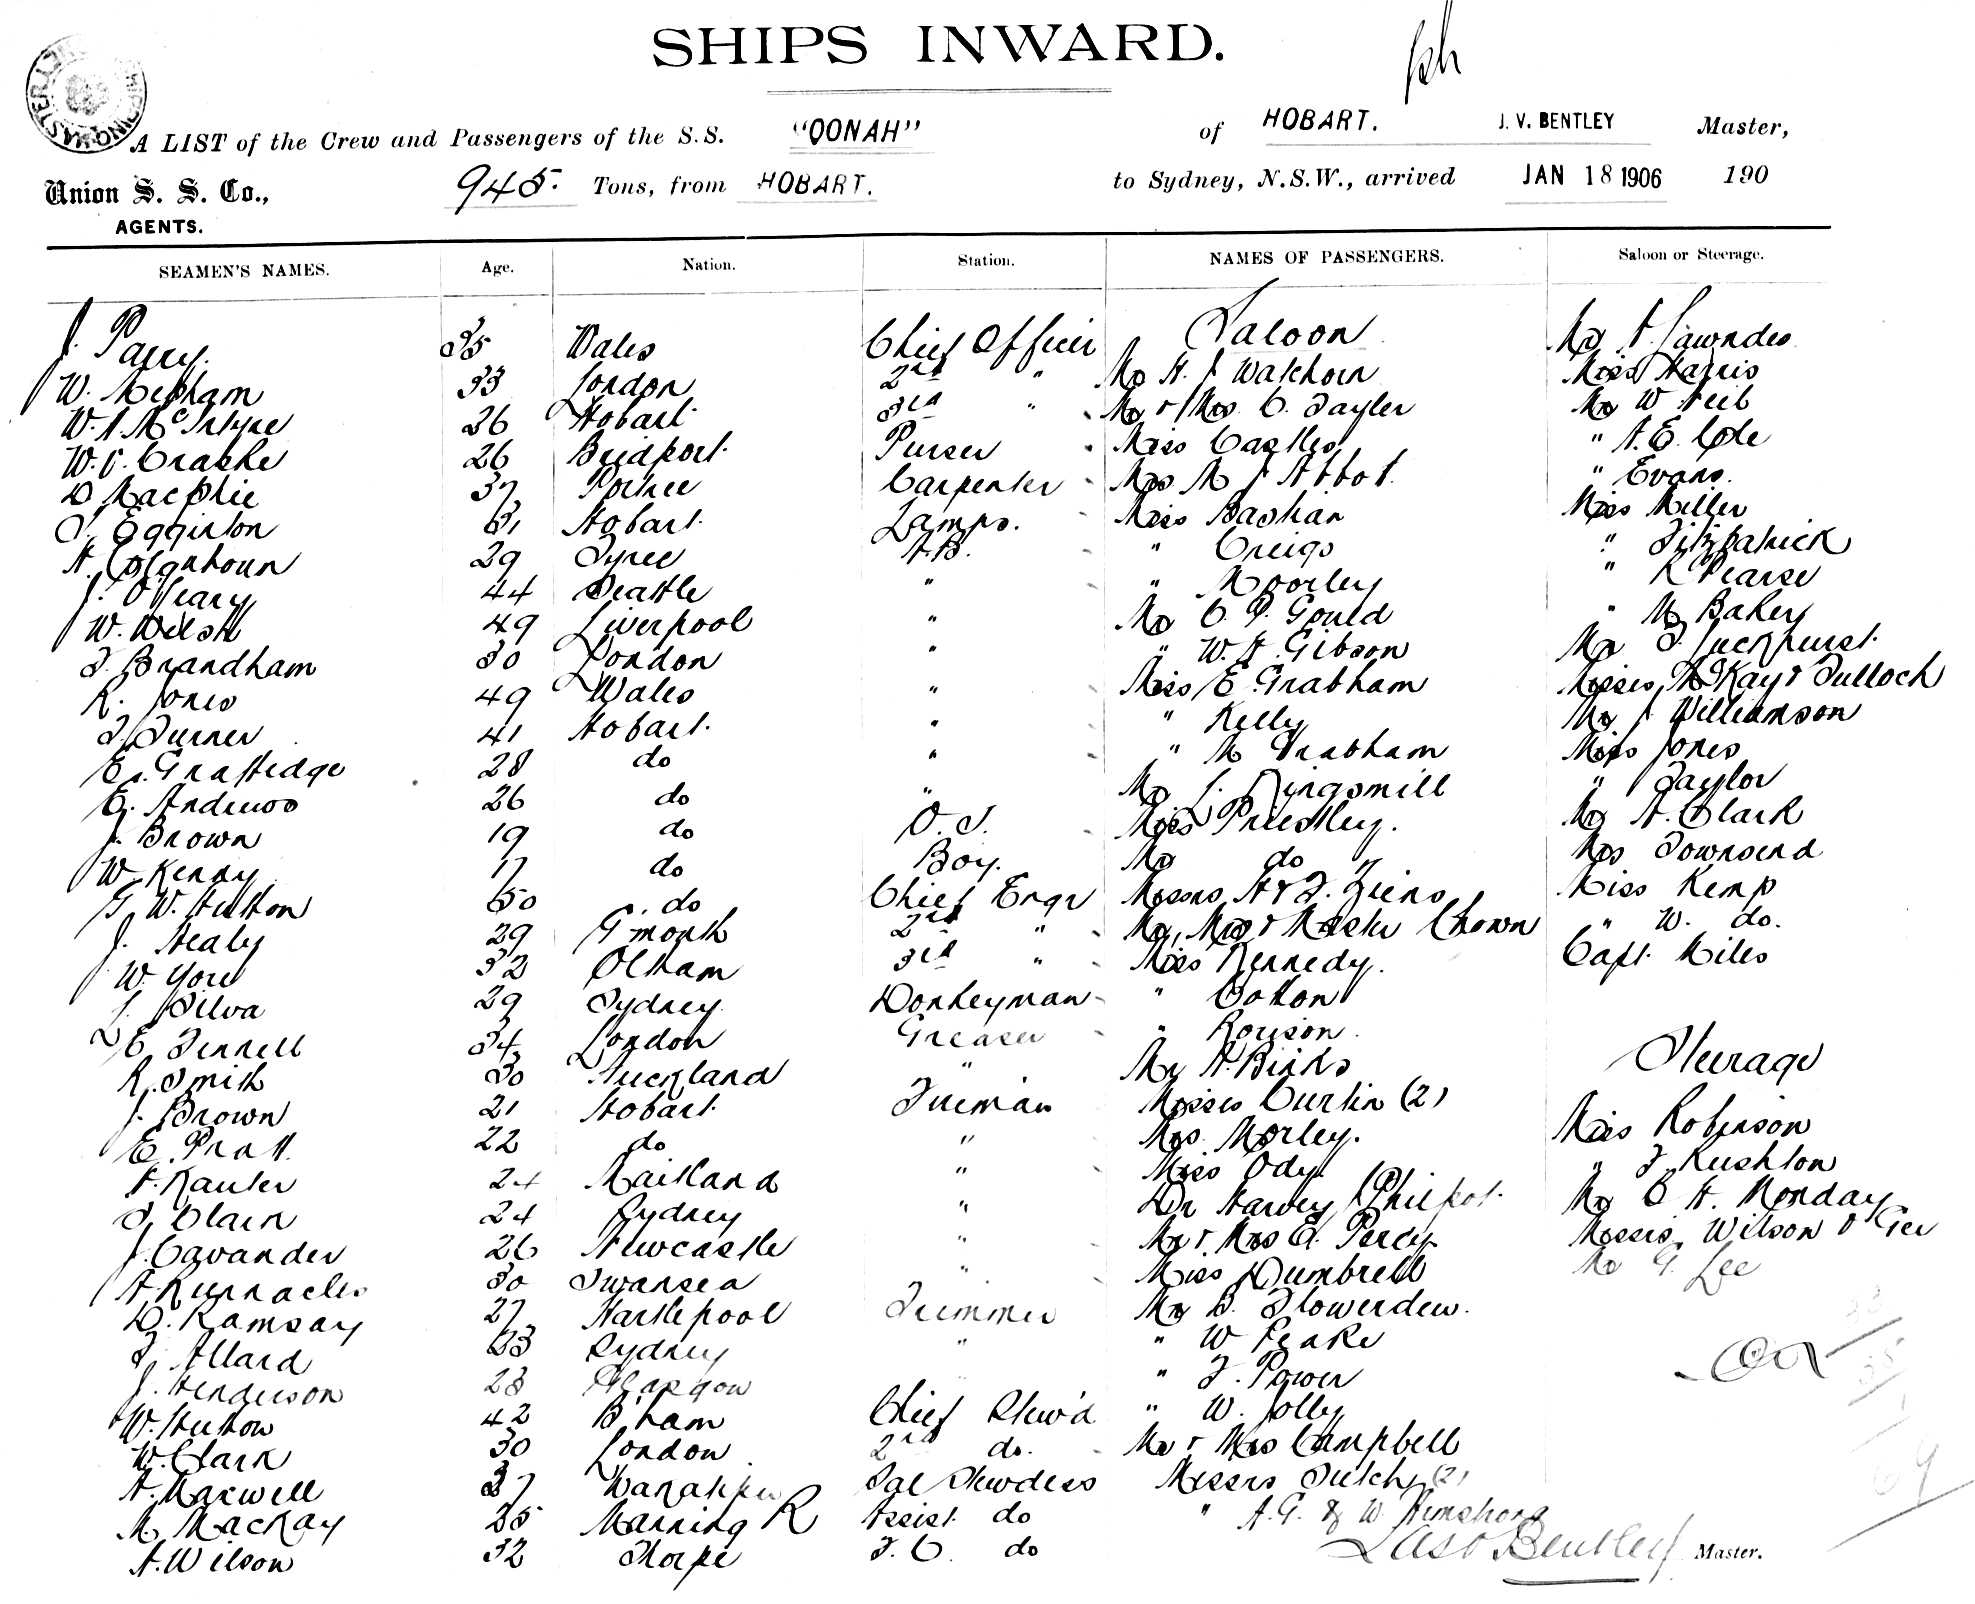 SHIPS INWARD.
A LIST of the Crew and Passengers of the S.S. "OONAH" of HOBART. J. V. BENTLEY Master,
Union S. S. Co., 945. Tons, from HOBART. to Sydney, N.S.W., arrived JAN 18 1906 190
AGENTS.
SEAMEN'S NAMES. Age. Nation. Station. NAMES OF PASSENGERS. Saloon or Steerage.
J. Parry. 35 Wales Chief Officer Saloon Mr A Lawndes
W. Mepham 33 London 2nd " Mr H. J Watchorn Miss Harris
W. A. McIntyre 26 Hobart 3rd " Mr & Mrs. C. Tayler Mr W Neil
W. C. Crashe 26 Bridport. Purser Miss Castles " A. E. Cole
D MacPhie 37 Portree Carpenter Mrs M J Abbot. " Evans.
Eggirton 61 Hobart. Lamps. Miss Bashan Miss Miller
A Colquhoun 29 Tyree A.B. " Creigs " Fitzpatrick
J. O'Leary 44 Seattle " " Moorley " R Pearse
W. Welsh 49 Liverpool " Mr C. P. Gould " M Baker
T. Brandham 30 London " " W. H. Gibson Mr T. Luckhurst.
R. Jones 49 Wales " Miss E. Grabham Misses McKay & Tulloch
T. Turner 41 Hobart. " " Kelly Mr J Williamson
E. Grattidge 28 do " " M Grabham Miss Jones
E. Andrews 26 do " Mr J. Kingsmill " Taylor
J. Brown 19 do O.S. Miss Priestley. Mr A. Clark
W. Kenny 17 do Boy. Mr do Mrs Townsend
G. W. Hutton 50 do Chief Engr Messrs H & F. Miss Kemp
J. Healy 29 G'mouth 2nd " Mr, Mrs & Master Chown " W. do.
W. Yore 32 Oldham 3rd " Miss Kennedy. Capt. Miles
J. Silva 29 Sydney Donkeyman " Cotton
E Finnell 34 London Greaser " Rorison.
R. Smith 30 Auckland " Mr A. Binks Steerage
J. Brown 21 Hobart. Fireman Misses Curtin (2)
E. Pratt. 22 do " Mrs. Morley. Miss Robinson
A. Kauter 24 Maitland " Miss Ody " F Rushton
T. Clain 24 Sydney " Dr Harvey Philpot. Mr C H. Monday
J. Cavander 26 Newcastle " Mr & Mrs A. Percy Messrs Wilson & Gee
A Runnacles 30 Swansea " Miss Dumbrell Mr G. Lee
D. Ramsay 27 Hartlepool Trimmer Mr B. Flowerdew.
J. Allard 33 Sydney " " W Peake
J. Henderson 28 Glasgow " F. Power
W. Hutton 42 B'ham Chief Stew'd " W. Jolly
W. Clark 30 London 2nd do. Mr & Mrs Campbell
A. Maxwell 37 Sal Stewdess Messrs Tulch (2)
M. MacKay 35 Manning R Assist. do " A. G. & W Armstrong
A. Wilson 32 Thorpe F. C. do Bentley Master.